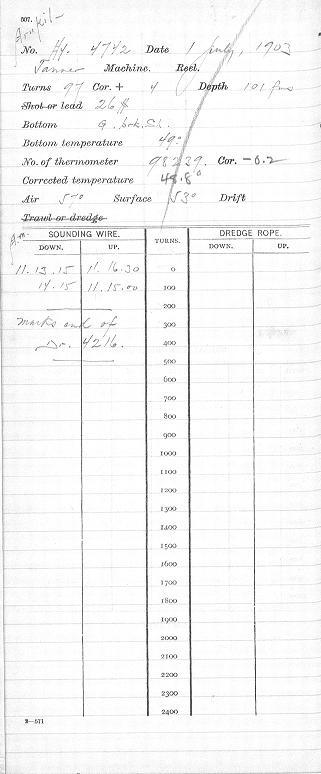 507.
No. Hy. 4742 Date 1 July, 1903
Tanner Machine. Reel.
Turns 97 Cor. + 4 Depth 101 fms
Shot or lead 26 #
Bottom G. brk. Sh.
Bottom temperature 49°
No. of thermometer 98239. Cor. -0.2
Corrected temperature 48.8°
Air 57° Surface 53° Drift
Trawl or dredge
a.m.
SOUNDING WIRE. TURNS. DREDGE ROPE.
DOWN. UP. DOWN. UP.
11.13.15 11.16.30 0
14.15 11.15.00 100
200
marks end of 300
Dr. 4216. 400
500
600
700
800
900
1000
1100
1200
1300
1400
1500
1600
1700
1800
1900
2000
2100
2200
2300
2400
2—571